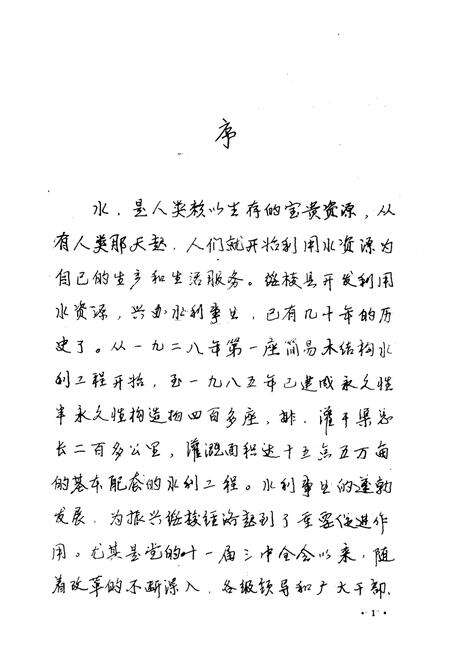 序
水，是人类赖以生存的宝贵资源，从
有人类那天起，人们就开始利用水资源为
自已的生产和生活服务。绥棱县开发利用
水资源，兴办水利事业，已有几十年的历
史了。从一九二八年第一座简易木结构水
利工程开始，至一九八五年已建成永久性
半永久性构造物四百多座，排、灌干渠总
长二百多公里，灌溉面积达十五点五万亩
的基本配套的水利工程。水利事业的蓬勃
发展，为振兴绥棱经济起到了重要促进作
用。尤其是党的十一届三中全会以来，随
着改革的不断深入，各级领导和广大干部、
·1·